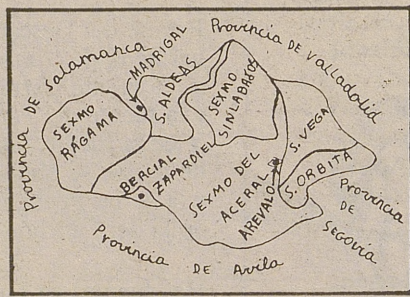 Provincia DE Salamanca
Provincia DE Valladolid
MADRIGAL
S. ALDEAS
SEXMO
SINLABAJOS
SEXMO
RÁGAMA
S. VEGA
BERCIAL
ZAPARDIEL
SEXMO DEL
ACERAL
AREVALO
S. ORBITA
Provincia
DE
SEGOVIA
Provincia DE Avila